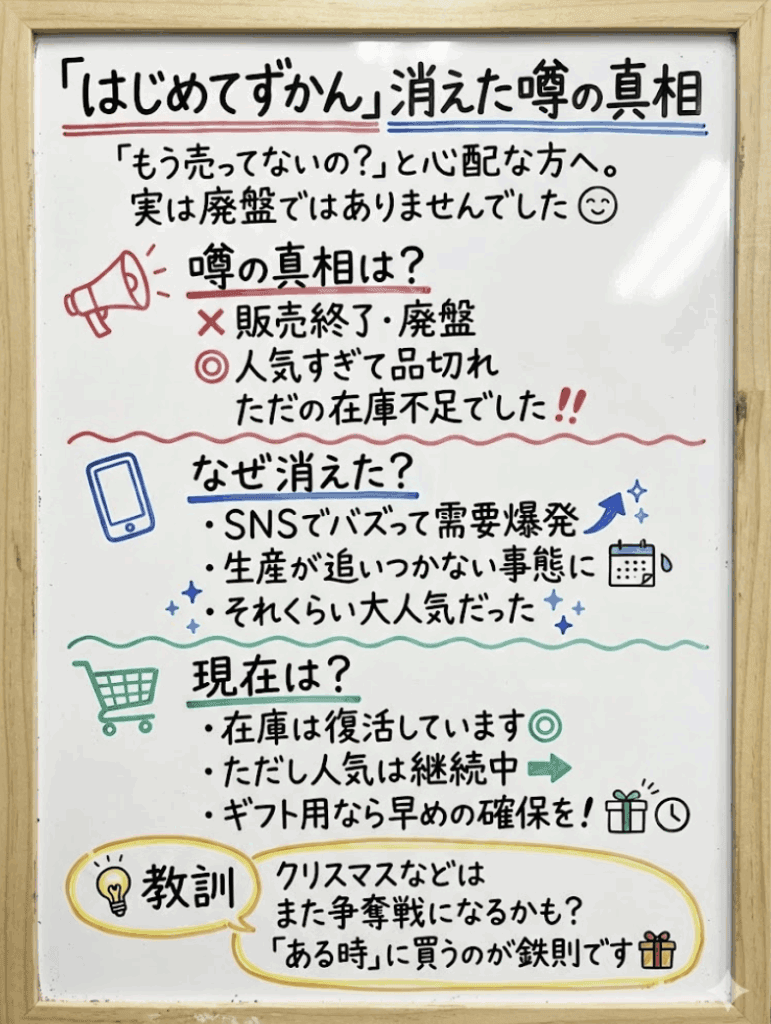 「はじめてずかん」消えた噂の真相
「もう売ってないの?」と心配な方へ。
実は廃盤ではありませんでした
噂の真相は?
×販売終了・廃盤
◎人気すぎて品切れ
ただの在庫不足でした!!
なぜ消えた?
・SNSでバズって需要爆発
・生産が追いつかない事態に
・それくらい大人気だった
現在は?
・在庫は復活しています◎
・ただし人気は継続中➡
・ギフト用なら早めの確保を!
教訓
クリスマスなどは
また争奪戦になるかも?
「ある時」に買うのが鉄則です